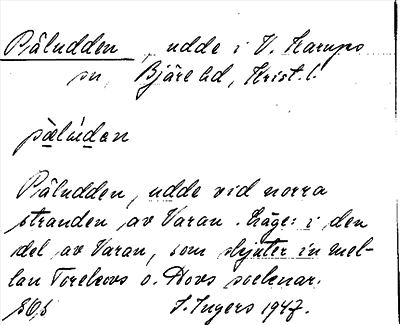 Päludden, udde i V. Karups
sn, Bjäre hd, Krist. l.
pä̀lúdan
Päludden, udde vid norra
stranden av Varan. Läge: i den
del av Varan, som skjuter in mel-
lan Torekovs o. Hovs socknar.
I. Ingers 1947.